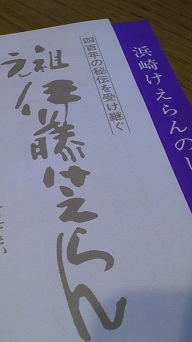 浜崎けえらんの
四百年の秘伝を受け継ぐ
祖伊藤けえらん